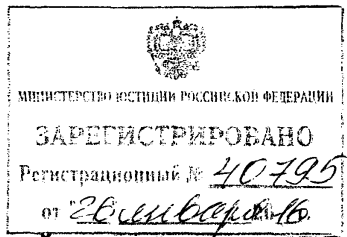 МИНИСТЕРСТВО ЮСТИЦИИ РОССИЙСКОЙ ФЕДЕРАЦИИ
ЗАРЕГИСТРИРОВАНО
Регистрационный № 40795
от "26" января 2016.